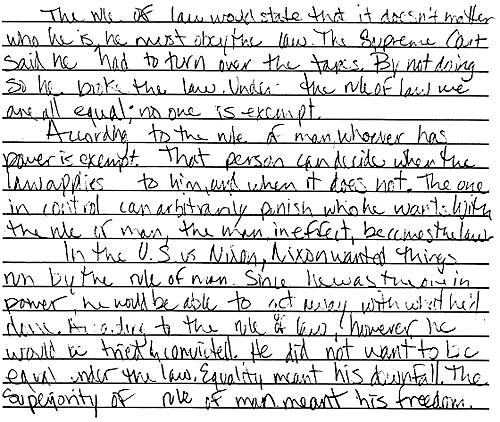 The rule of law would state that it doesn't matter
who he is, he must obey the law. The Supreme Court
said he had to turn over the tapes. By not doing
so he broke the law. Under the rule of law we
are all equal; no one is exempt.
According to the rule of man, whoever has
power is exempt. That person can decide when the
law applies to him, and when it does not. The one
in control can arbitrarily punish who he wants. With
the rule of man, the man in effect, becomes the law.
In the U.S. vs Nixon, Nixon wanted things
run by the rule of man. Since he was the one in
power, he would be able to get away with what he'd
done. According to the rule of law, however he
would be tried & convicted. He did not want to be
equal under the law. Equality meant his downfall. The
superiority of rule of man meant his freedom.